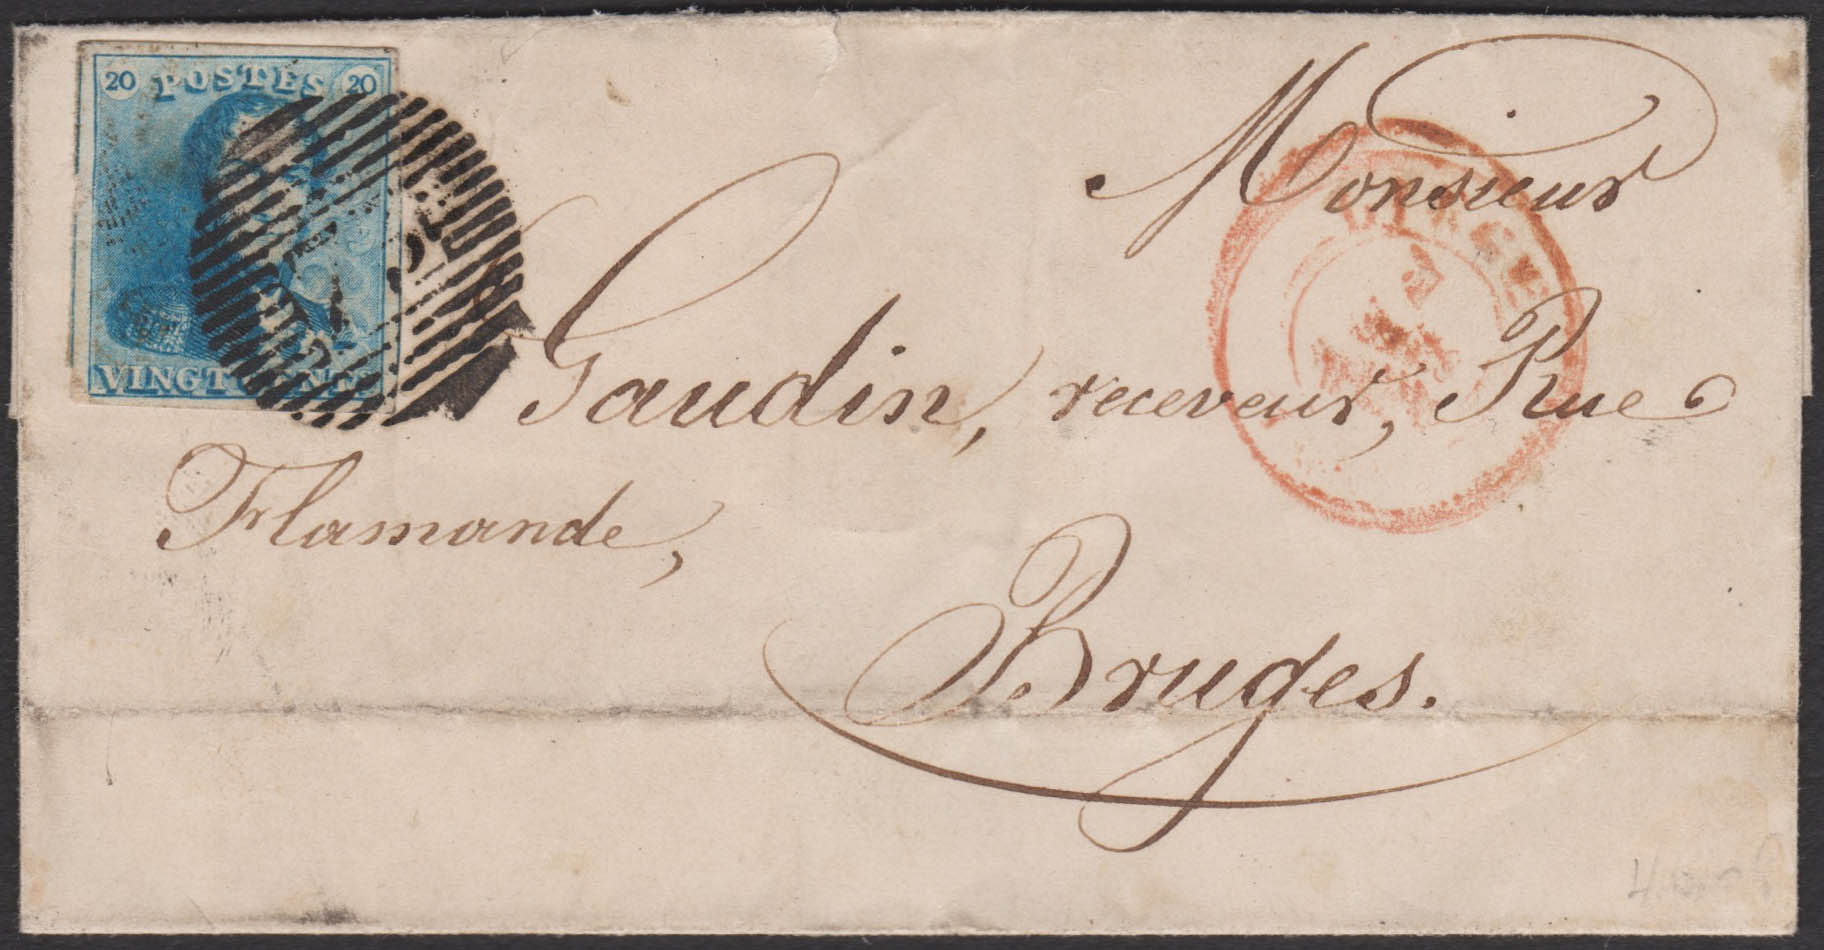 20 POSTES 20
VINGT CENTS
Monsieur
Gaudin, receveur, Rue
Flamande,
Bruges.